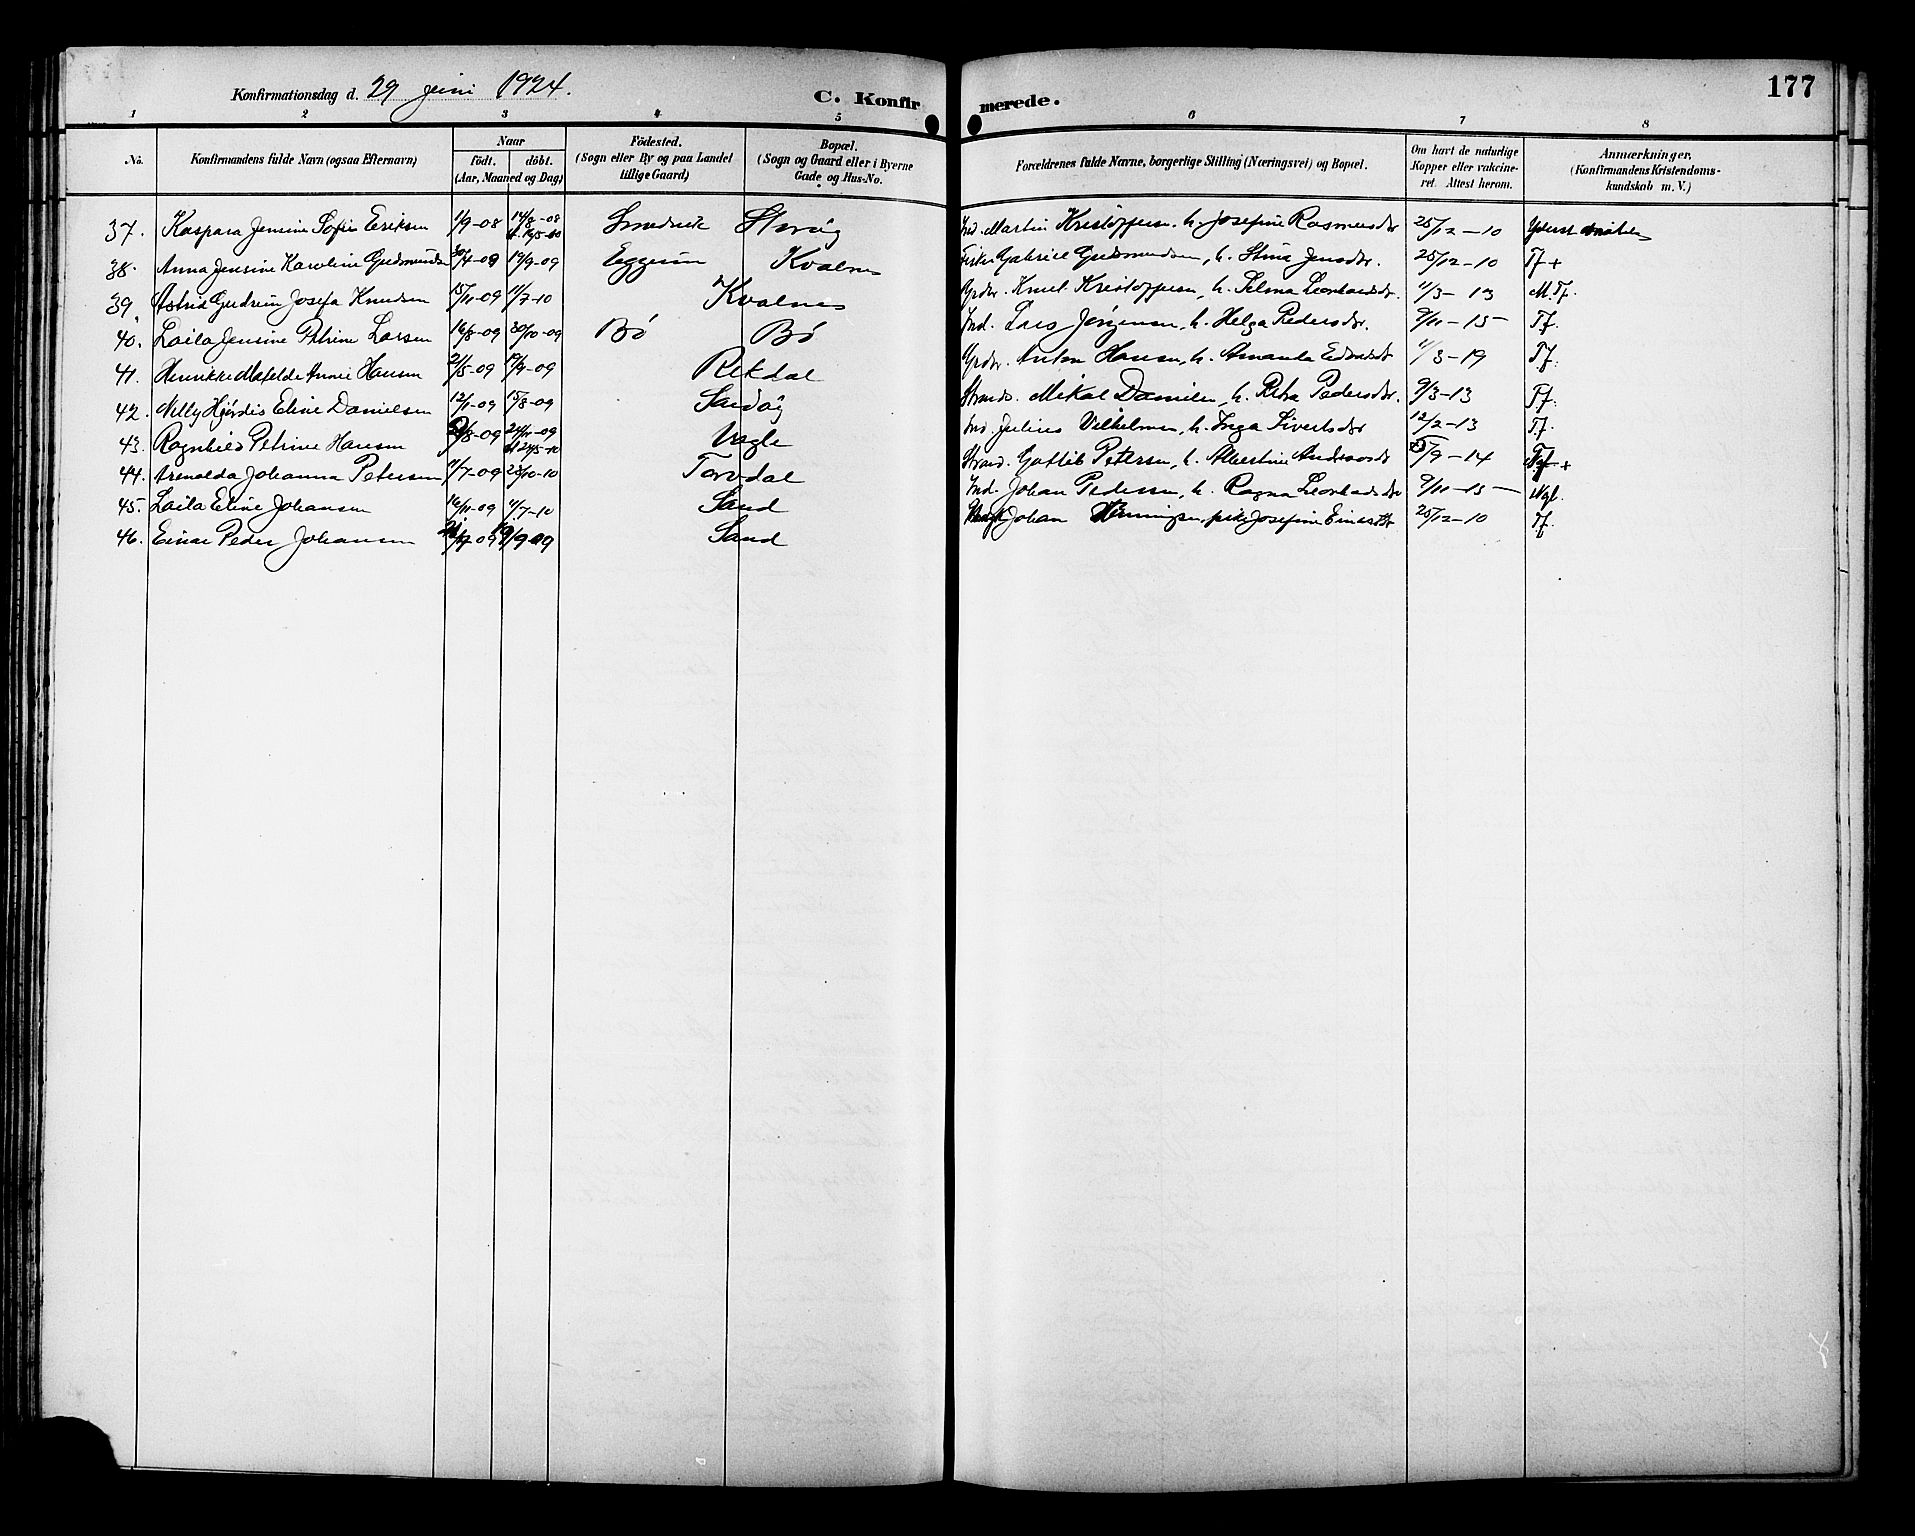 177
Konfirmationsdag d. 29 juni 1924.
C. Konfirmerede.
1 2 3 4 5 6 7 8
No. Konfirmandens fulde Navn (ogsaa Efternavn) Naar födt. döbt. (Aar, Maaned og Dag) Födested. (Sogn eller By og paa Landet tillige Gaard) Bopæl. (Sogn og Gaard eller i Byerne Gade og Hus-No. Forældrenes fulde Navne, borgerlige Stilling (Næringsvei) og Bopæl. Om havt de naturlige Kopper eller vaccineret. Attest herom. Anmærkninger. (Konfirmandens Kristendomskundskab m. V.)
37. Kaspara Jensine Sofie Eriksen 1/9-08 14/8-08 Smedvik Martin Kristoffersen, h. Josefine Rasmusdr 25/12-10
38. Anna Jensine Karoline Gudmundsen 30/4-09 19/9-09 Eggum Kvalnes Gabriel Gudmundsen, h. Stina Jensdr. 25/12-10 Tf +
39. Astrid Gudrun Josefa Knudsen 15/11-09 11/7-10 Kvalnes Grdbr. Knut Kristoffersen, h. Selma Leonhardsdr. 11/3-13 M.Tf.
40. Laila Jensine Petrine Larsen 16/8-09 30/10-09 Bö Bö Ind. Lars Jörgensen, h. Helga Pedersdr. 9/11-15 Tf.
41. Henrikke Mafelde Annie Hansen 21/5-09 19/9-09 Rekdal Grdbr. Anton Hansen, h. Amanda 11/3-19 Tf.
42. Nelly Hjördis Eline Danielsen 12/1-09 15/8-09 Sandöy Strands. Mikal Danielsen, h. Petra Pedersdr. 9/3-13 Tf.
43. Ragnhild Petrine Hansen /8-09 24/11-09 Vagle Ind. Julius Vilhelmsen, h. Inga Sivertsdr 12/2-13 Tf.
44. Arnolda Johanna Petersen 11/7-09 23/10-10 Torvdal Strand. Gottlib Petersen, h. Albertine Andersdr /9-14
45. Laila Eline Johansen 16/11-09 11/7-10 Sand Ind. Johan Pedersen, h. Ragna Leonhardsdr 9/11-15 Ngf.
46. Einar Peder Johansen 19/9-09 Sand Johan Henningsen, pike Josefine Einarsdr 25/12-10 Tf.